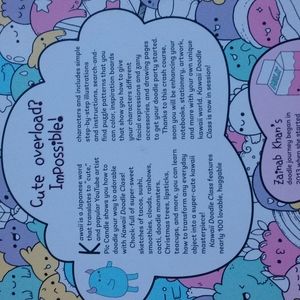 Cute overload?
Impossible!
Kawaii is a Japanese word
that translates to "cute,"
and popular YouTube artist
Pic Candle shows you how to
doodle your way to adorable
with Kawaii Doodle Class!
Chock-full of super-sweet
sketches of tacos, sushi,
smoothies, clouds, rainbows,
cacti, doodle monsters,
Christmas trees, lipsticks,
teacups, and more, you can learn
how to transform any everyday
object into a super-cute kawaii
masterpiece!
Kawaii Doodle Class features
nearly 100 lovable, huggable
characters and includes simple
step-by-step illustrations
and instructions, search-and-
find puzzle patterns you
can color, inspiration boards
that show you how to give
your characters different
facial expressions and zany
accessories, and drawing pages
to get your doodle party started.
Thanks to this crash course,
soon you will be enhancing your
notebooks, stationery, artwork,
and more with your own unique
kawaii world. Kawaii Doodle
Class is now in session!
Zainab Khan's
doodle journey began in
when she started